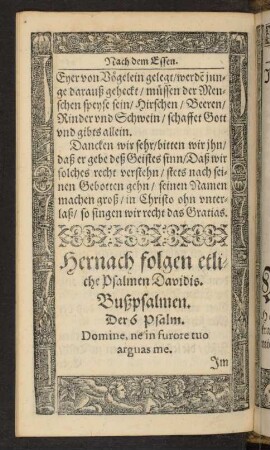 Nach dem Essen.
Eyer von Vögelein gelegt/werdē jun-
ge darauß geheckt/müssen der Men-
schen speyse sein/Hirschen/Beeren/
Rinder vnd Schwein/schaffet Gott
vnd gibts allein.
Dancken wir sehr/bitten wir jhn/
daß er gebe deß Geistes sinn/Daß wir
solches recht verstehn/stets nach sei-
nen Gebotten gehn/seinen Namen
machen groß/in Christo ohn vnter-
laß/so singen wir recht das Gratias.
Hernach folgen etli-
che Psalmen Davidis.
Bußpsalmen.
Der 6 Psalm.
Domine, ne in furore tuo
arguas me.
Im